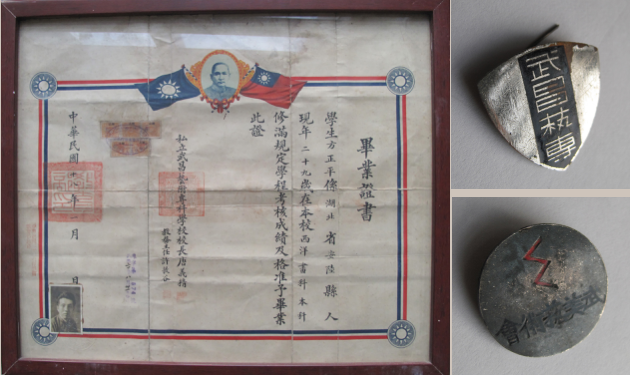 畢業證書
學生方正平係湖北省安陸縣人
現年二十九歲在本校西洋畫科本科
修滿規定學程考核成績及格准予畢業
此證
私立武昌藝術專科學校校長唐義精
中華民國卅八年一月 日
武昌藝專
武美藝術會